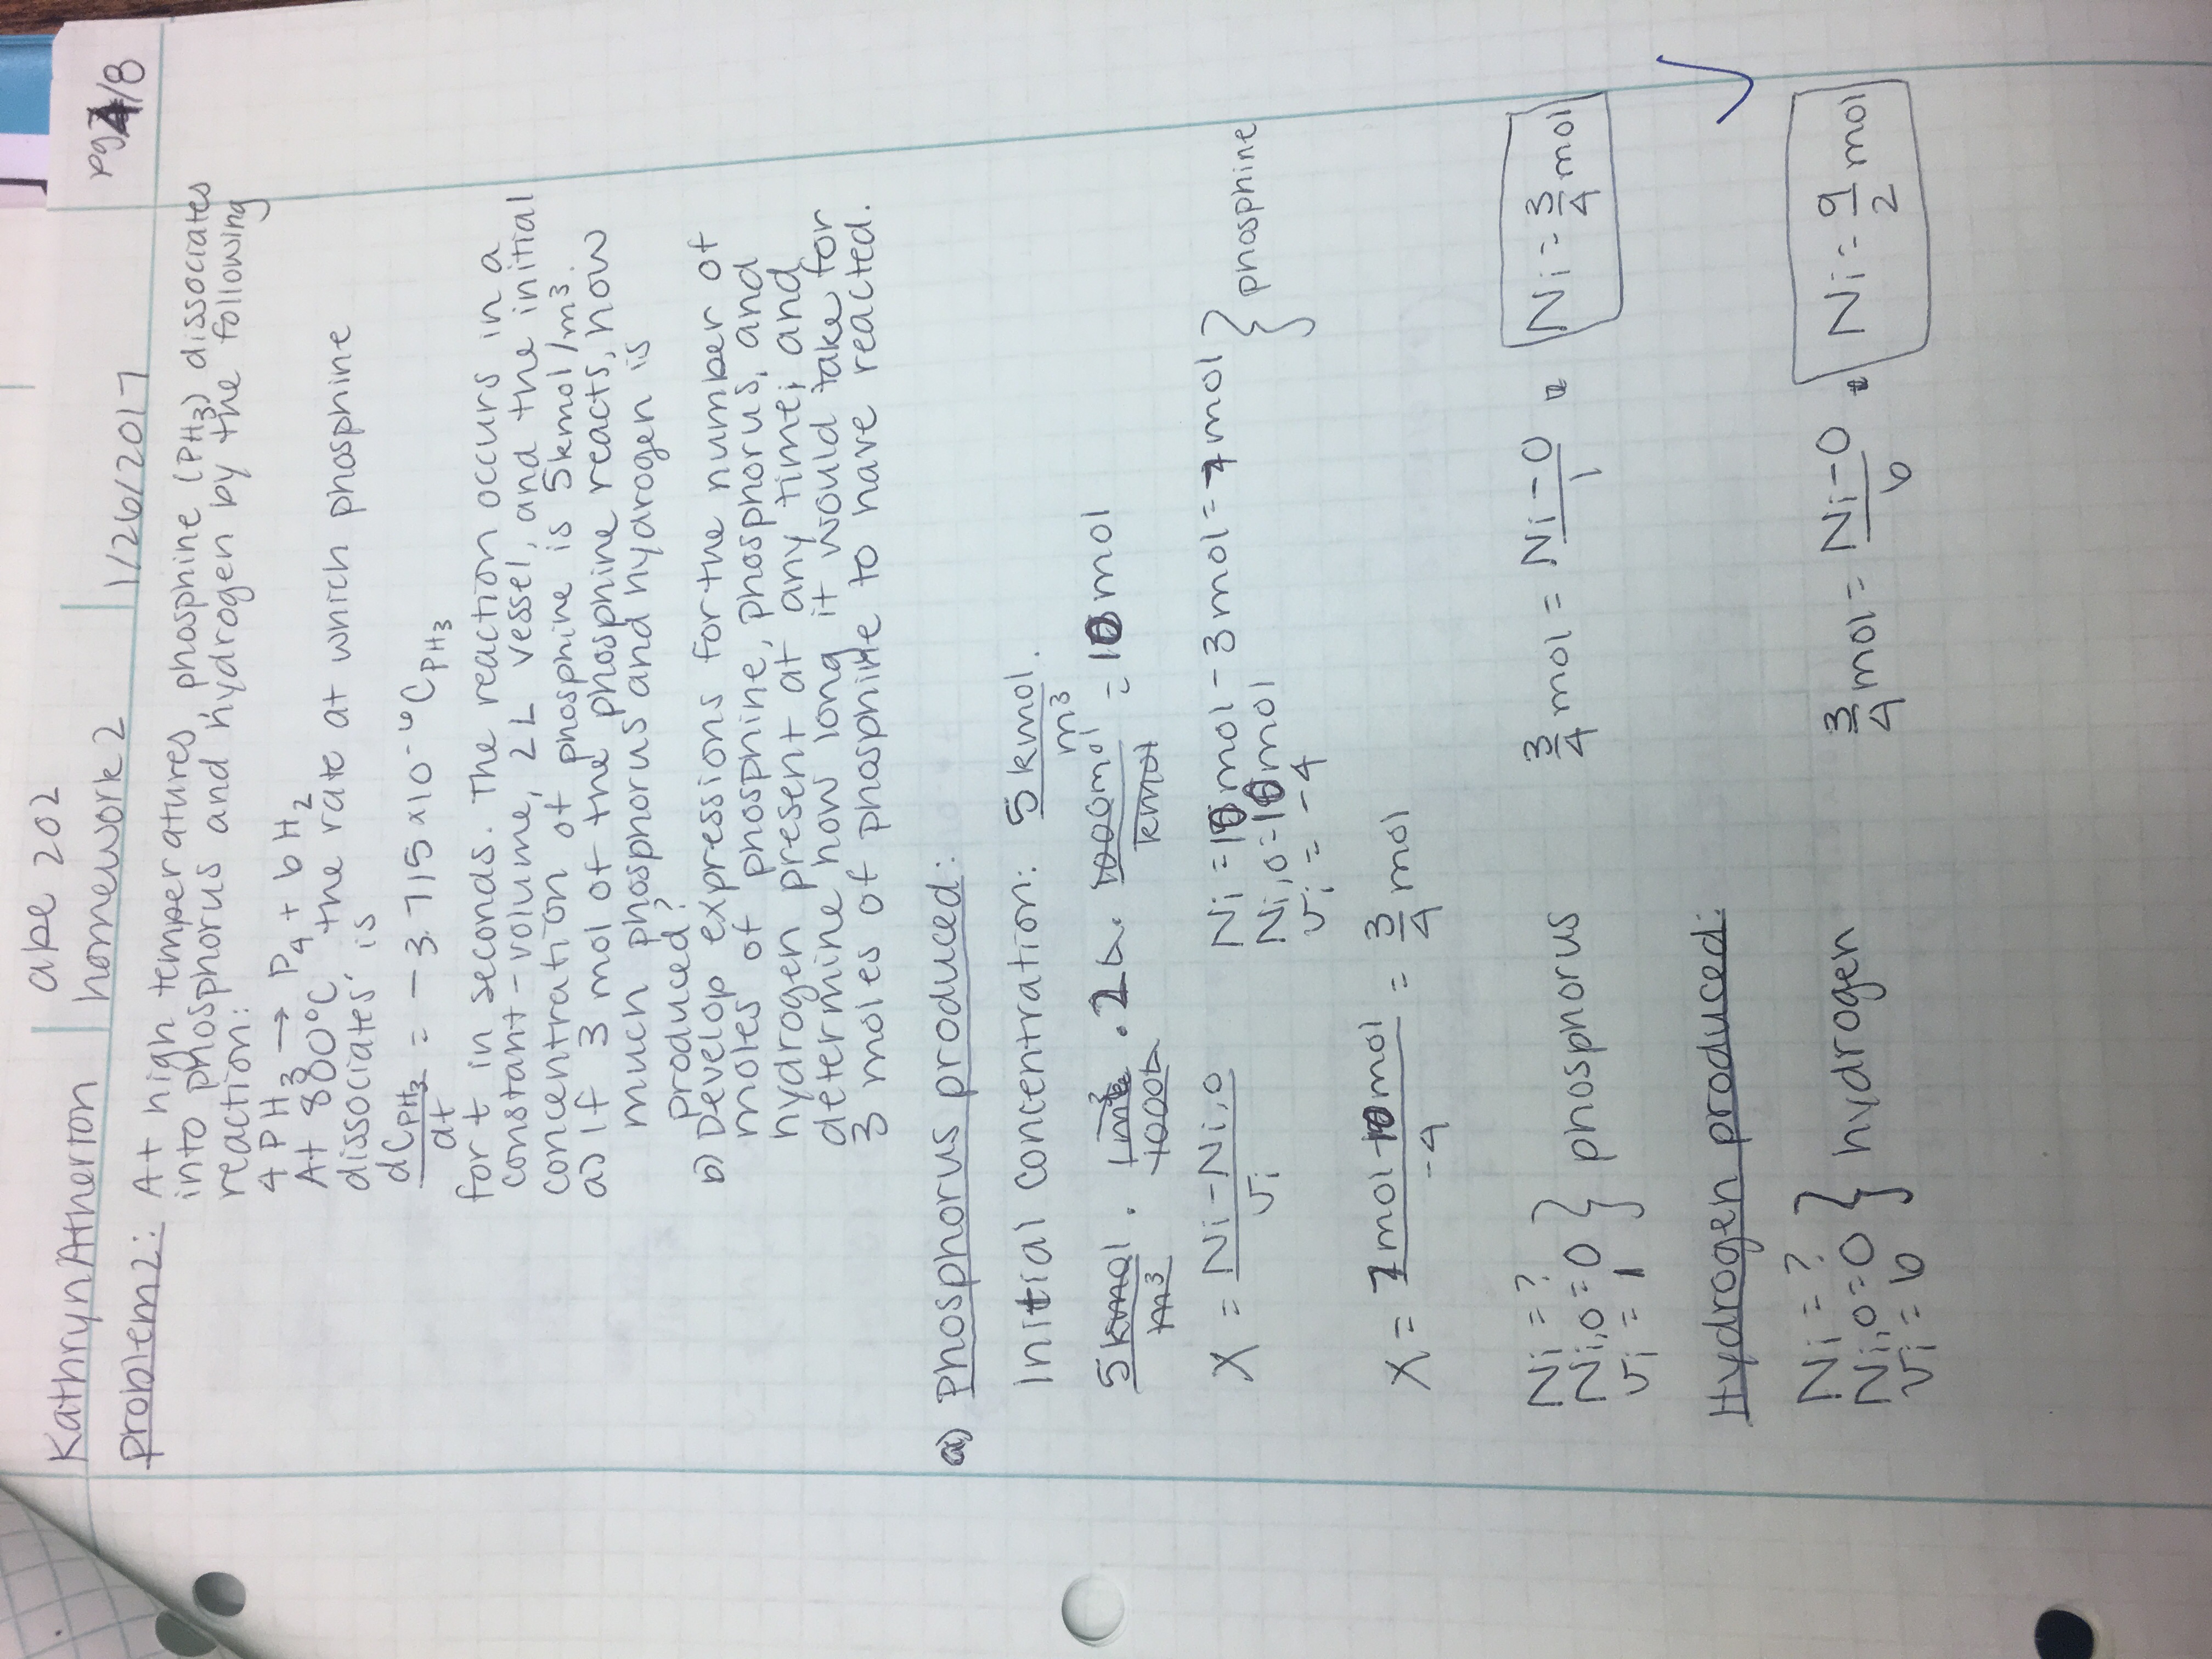 Kathryn Atherton
abe 202
homework 2
1/26/2017
pg 4/8
problem 2: At high temperatures, phosphine (PH3) dissociates
into phosphorus and hydrogen by the following
reaction:
4 PH3 → P4 + 6 H2
At 880°C, the rate at which phosphine
dissociates is
dCPH3/dt = -3.715 x10^-6 CPH3
for t in seconds. The reaction occurs in a
constant-volume, 2L vessel, and the initial
concentration of phosphine is 5kmol/m³.
a) If 3 mol of the phosphine reacts, how
much phosphorus and hydrogen is
produced?
b) Develop expressions for the number of
moles of phosphine, phosphorus, and
hydrogen present at any time; and
determine how long it would take for
3 moles of phosphine to have reacted.
a) Phosphorus produced:
Initial concentration: 5 kmol/m³.
5 kmol/m³ · 1m³/1000L · 2L · 1000mol/kmol = 10 mol
X = Ni - Ni,0/νi
Ni = 10mol - 3mol = 7mol
Ni,0 = 10mol
νi = -4
} phosphine
X = 7mol - 10mol/-4 = 3/4 mol
Ni = ?
Ni,0 = 0
νi = 1
} phosphorus
3/4 mol = Ni - 0/1
Ni = 3/4 mol
Hydrogen produced:
Ni = ?
Ni,0 = 0
νi = 6
} hydrogen
3/4 mol = Ni - 0/6
Ni = 9/2 mol